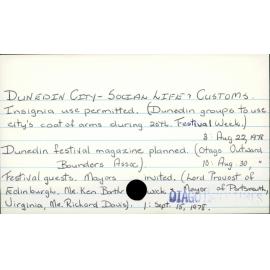 DUNEDIN CITY- SOCIAL LIFE & CUSTOMS.
Insignia use permitted. (Dunedin groups to use
city's coat of arms during 20th. Festival Week.)
3: Aug 22, 1978
Dunedin festival magazine planned. (Otago Outward
Bounders Assoc). 10: Aug. 30, "
Festival guests. Mayors invited. (Lord Provost of
Edinburgh, Mr. Ken Borth wick & Mayor of Portsmouth,
Virginia, Mr. Richard Davis). 1: Sept. 15, 1978.